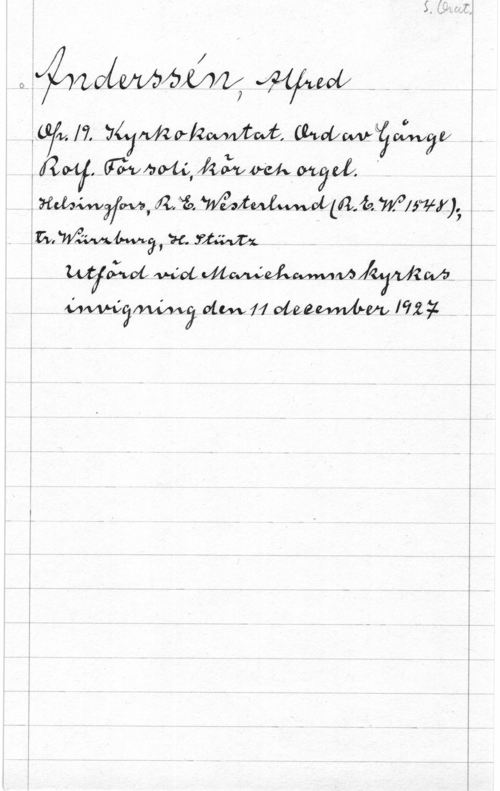 S. Orat.
Anderssén, Alfred
Op. 19. Kyrkokantat. Ord av Gånge
Rolf. För soli, kör och orgel.
Helsingfors, R. E. Westerlund (R. E. W. No 1548);
tr. Würzburg, H. Stürtz
Utförd vid Mariehamns kyrkas
invigning den 11 december 1927